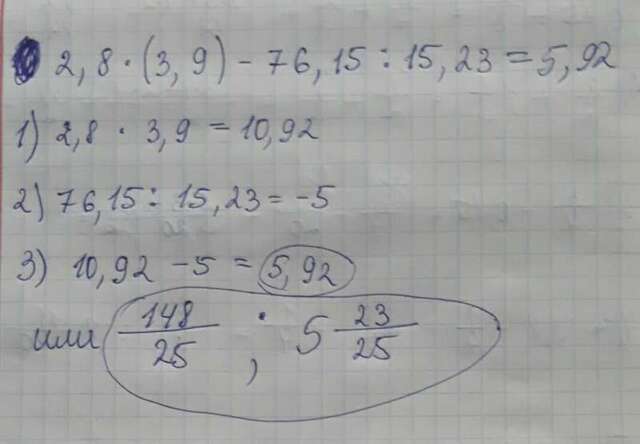 2,8 · (3,9) - 76,15 : 15,23 = 5,92
1) 2,8 · 3,9 = 10,92
2) 76,15 : 15,23 = -5
3) 10,92 - 5 = 5,92
или 148/25 ; 5 23/25